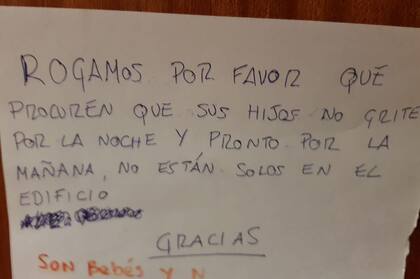 ROGAMOS POR FAVOR QUE
PROCUREN QUE SUS HIJOS NO GRITE
POR LA NOCHE Y PRONTO POR LA
MAÑANA, NO ESTÁN SOLOS EN EL
EDIFICIO
GRACIAS
SON BEBÉS Y N